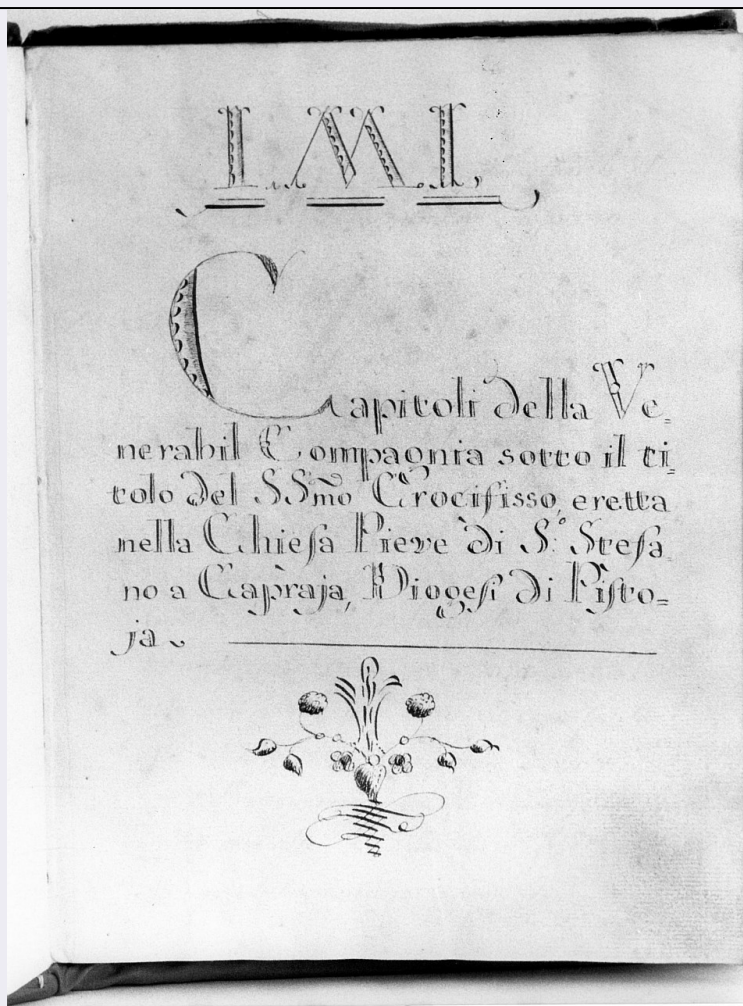 I. M. I.
Capitoli della Ve=
nerabil Compagnia sotto il ti=
tolo del SSmo Crocifisso, eretta
nella Chiesa Pieve di S.º Stefa
no a Capraja, Diogesi di Pisto=
ja.